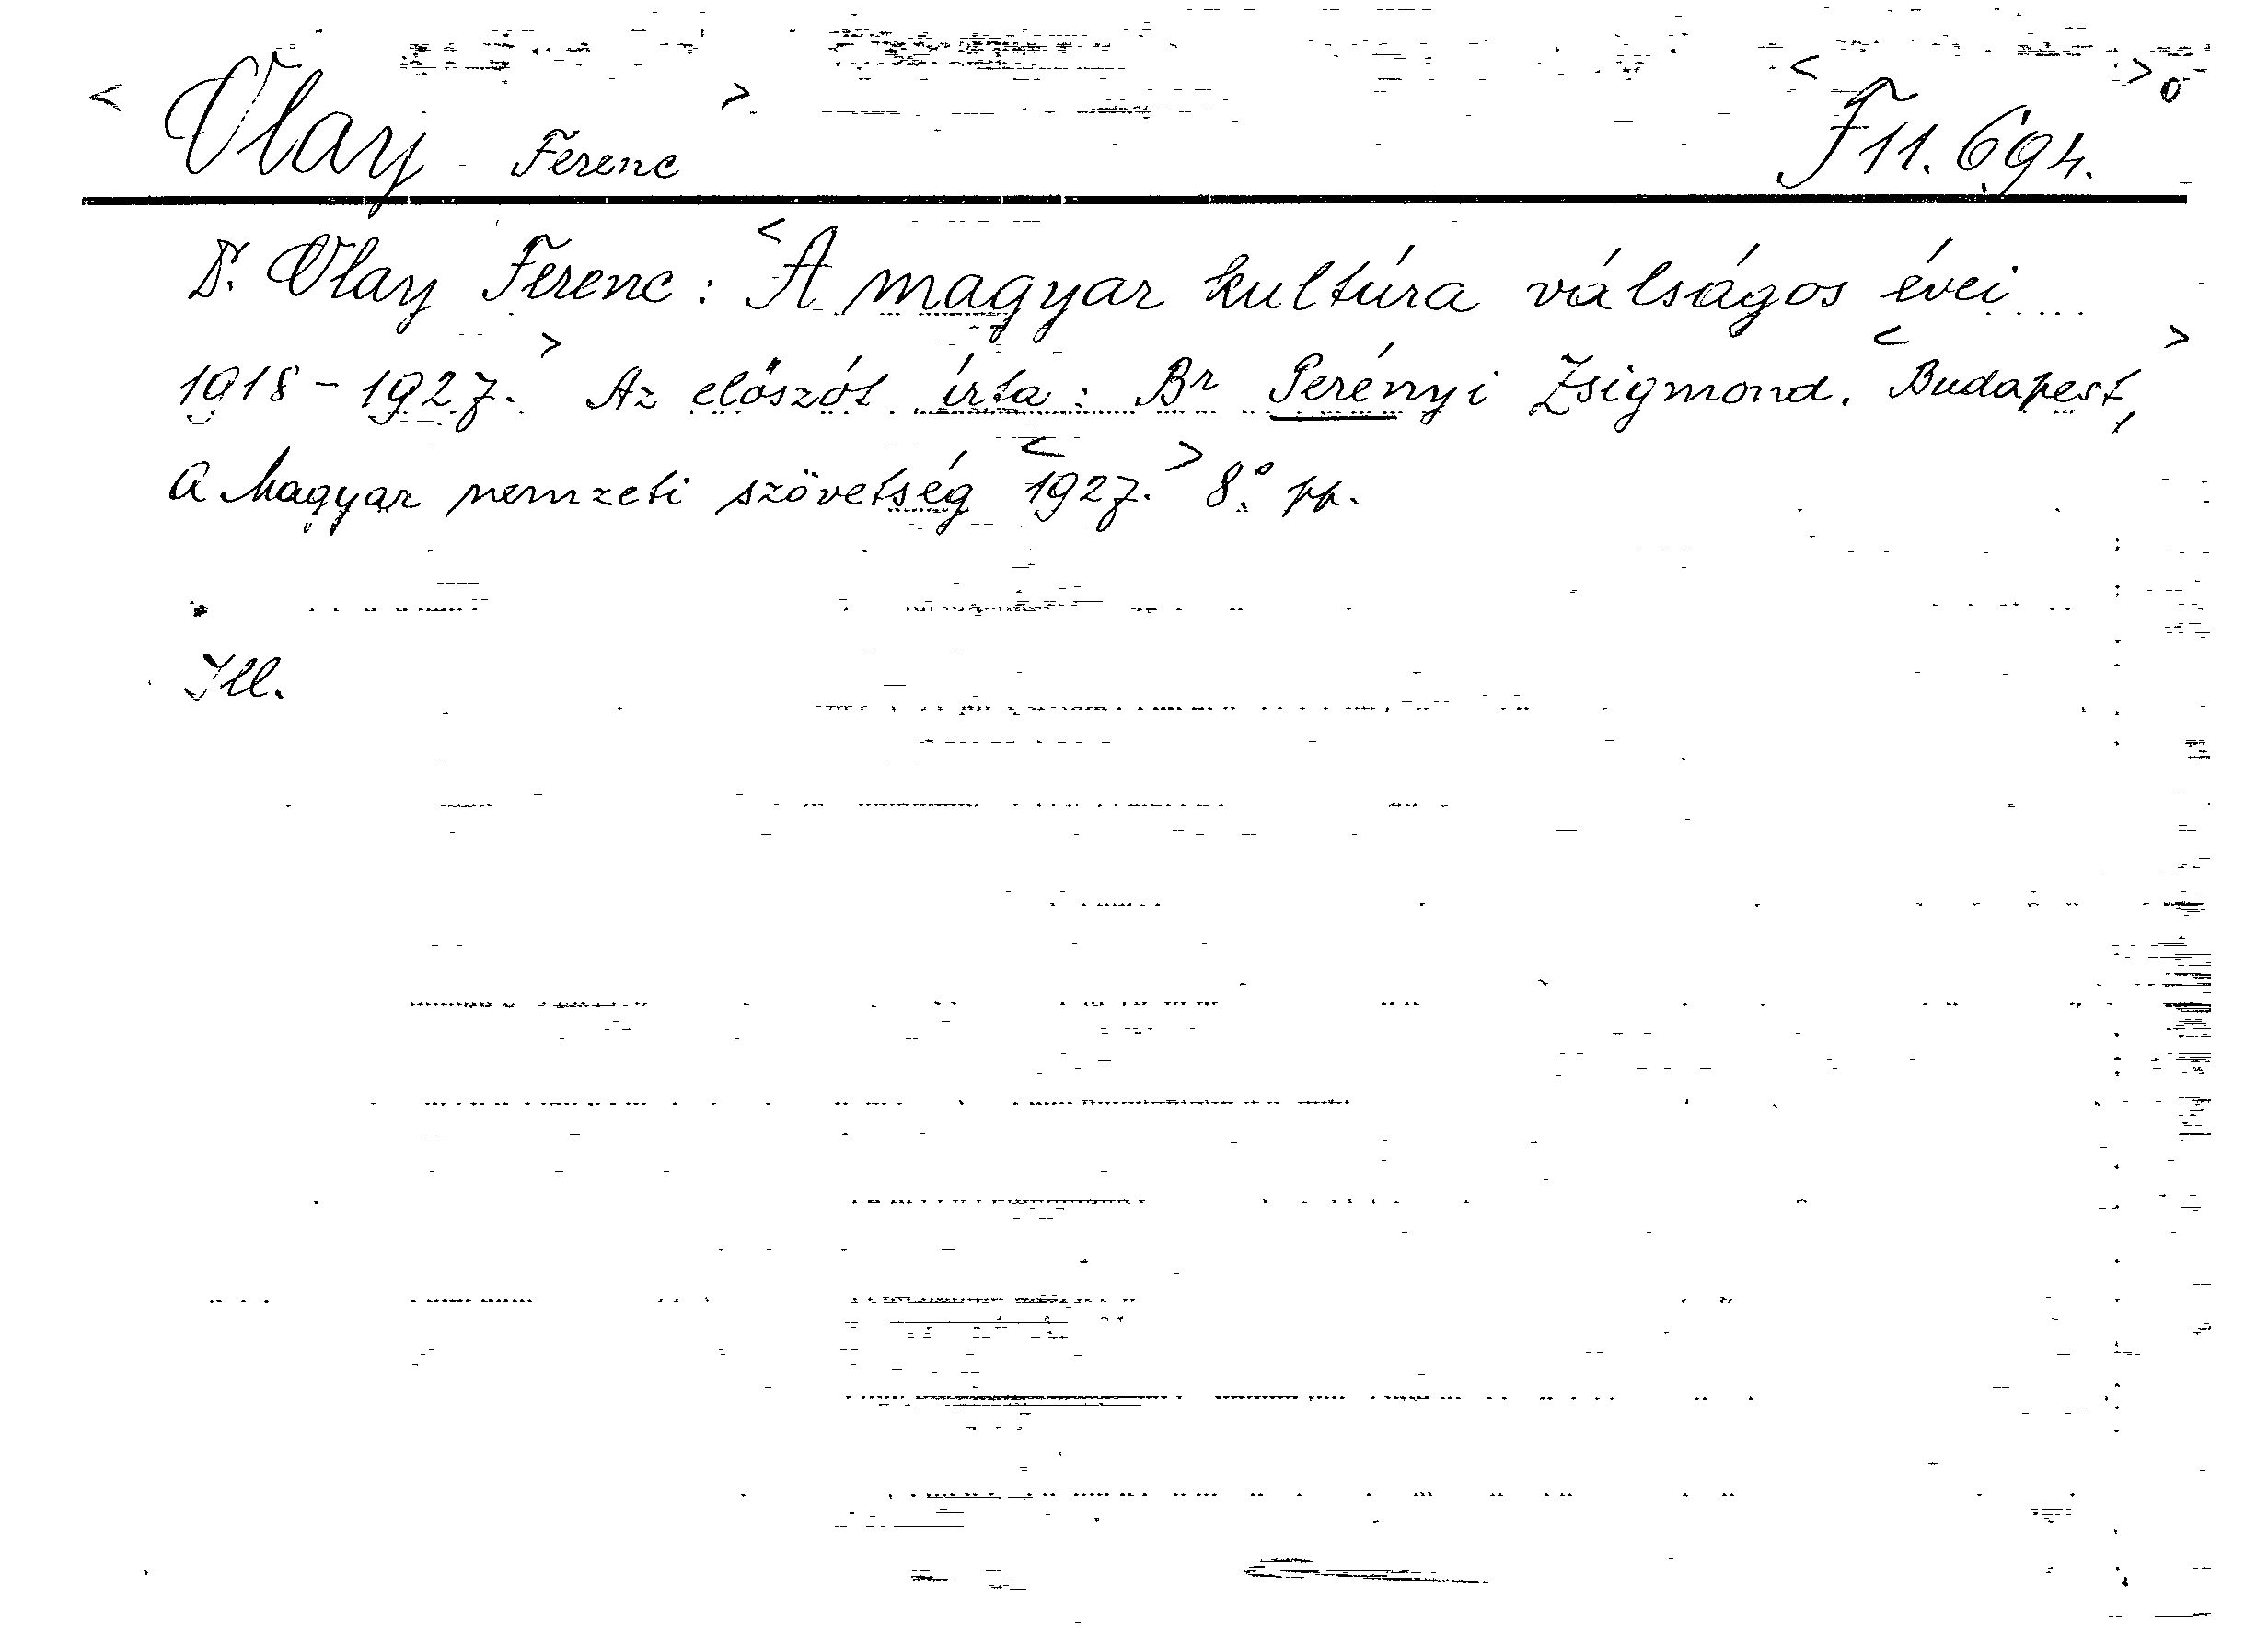 < Olay Ferenc > < F 11.694. > o
D. Olay Ferenc: < A magyar kultúra válságos évei
1918-1927. > Az előszót írta: Br Perényi Zsigmond. < Budapest, >
a Magyar nemzeti szövetség < 1927. > 8.° pp.
Ill.